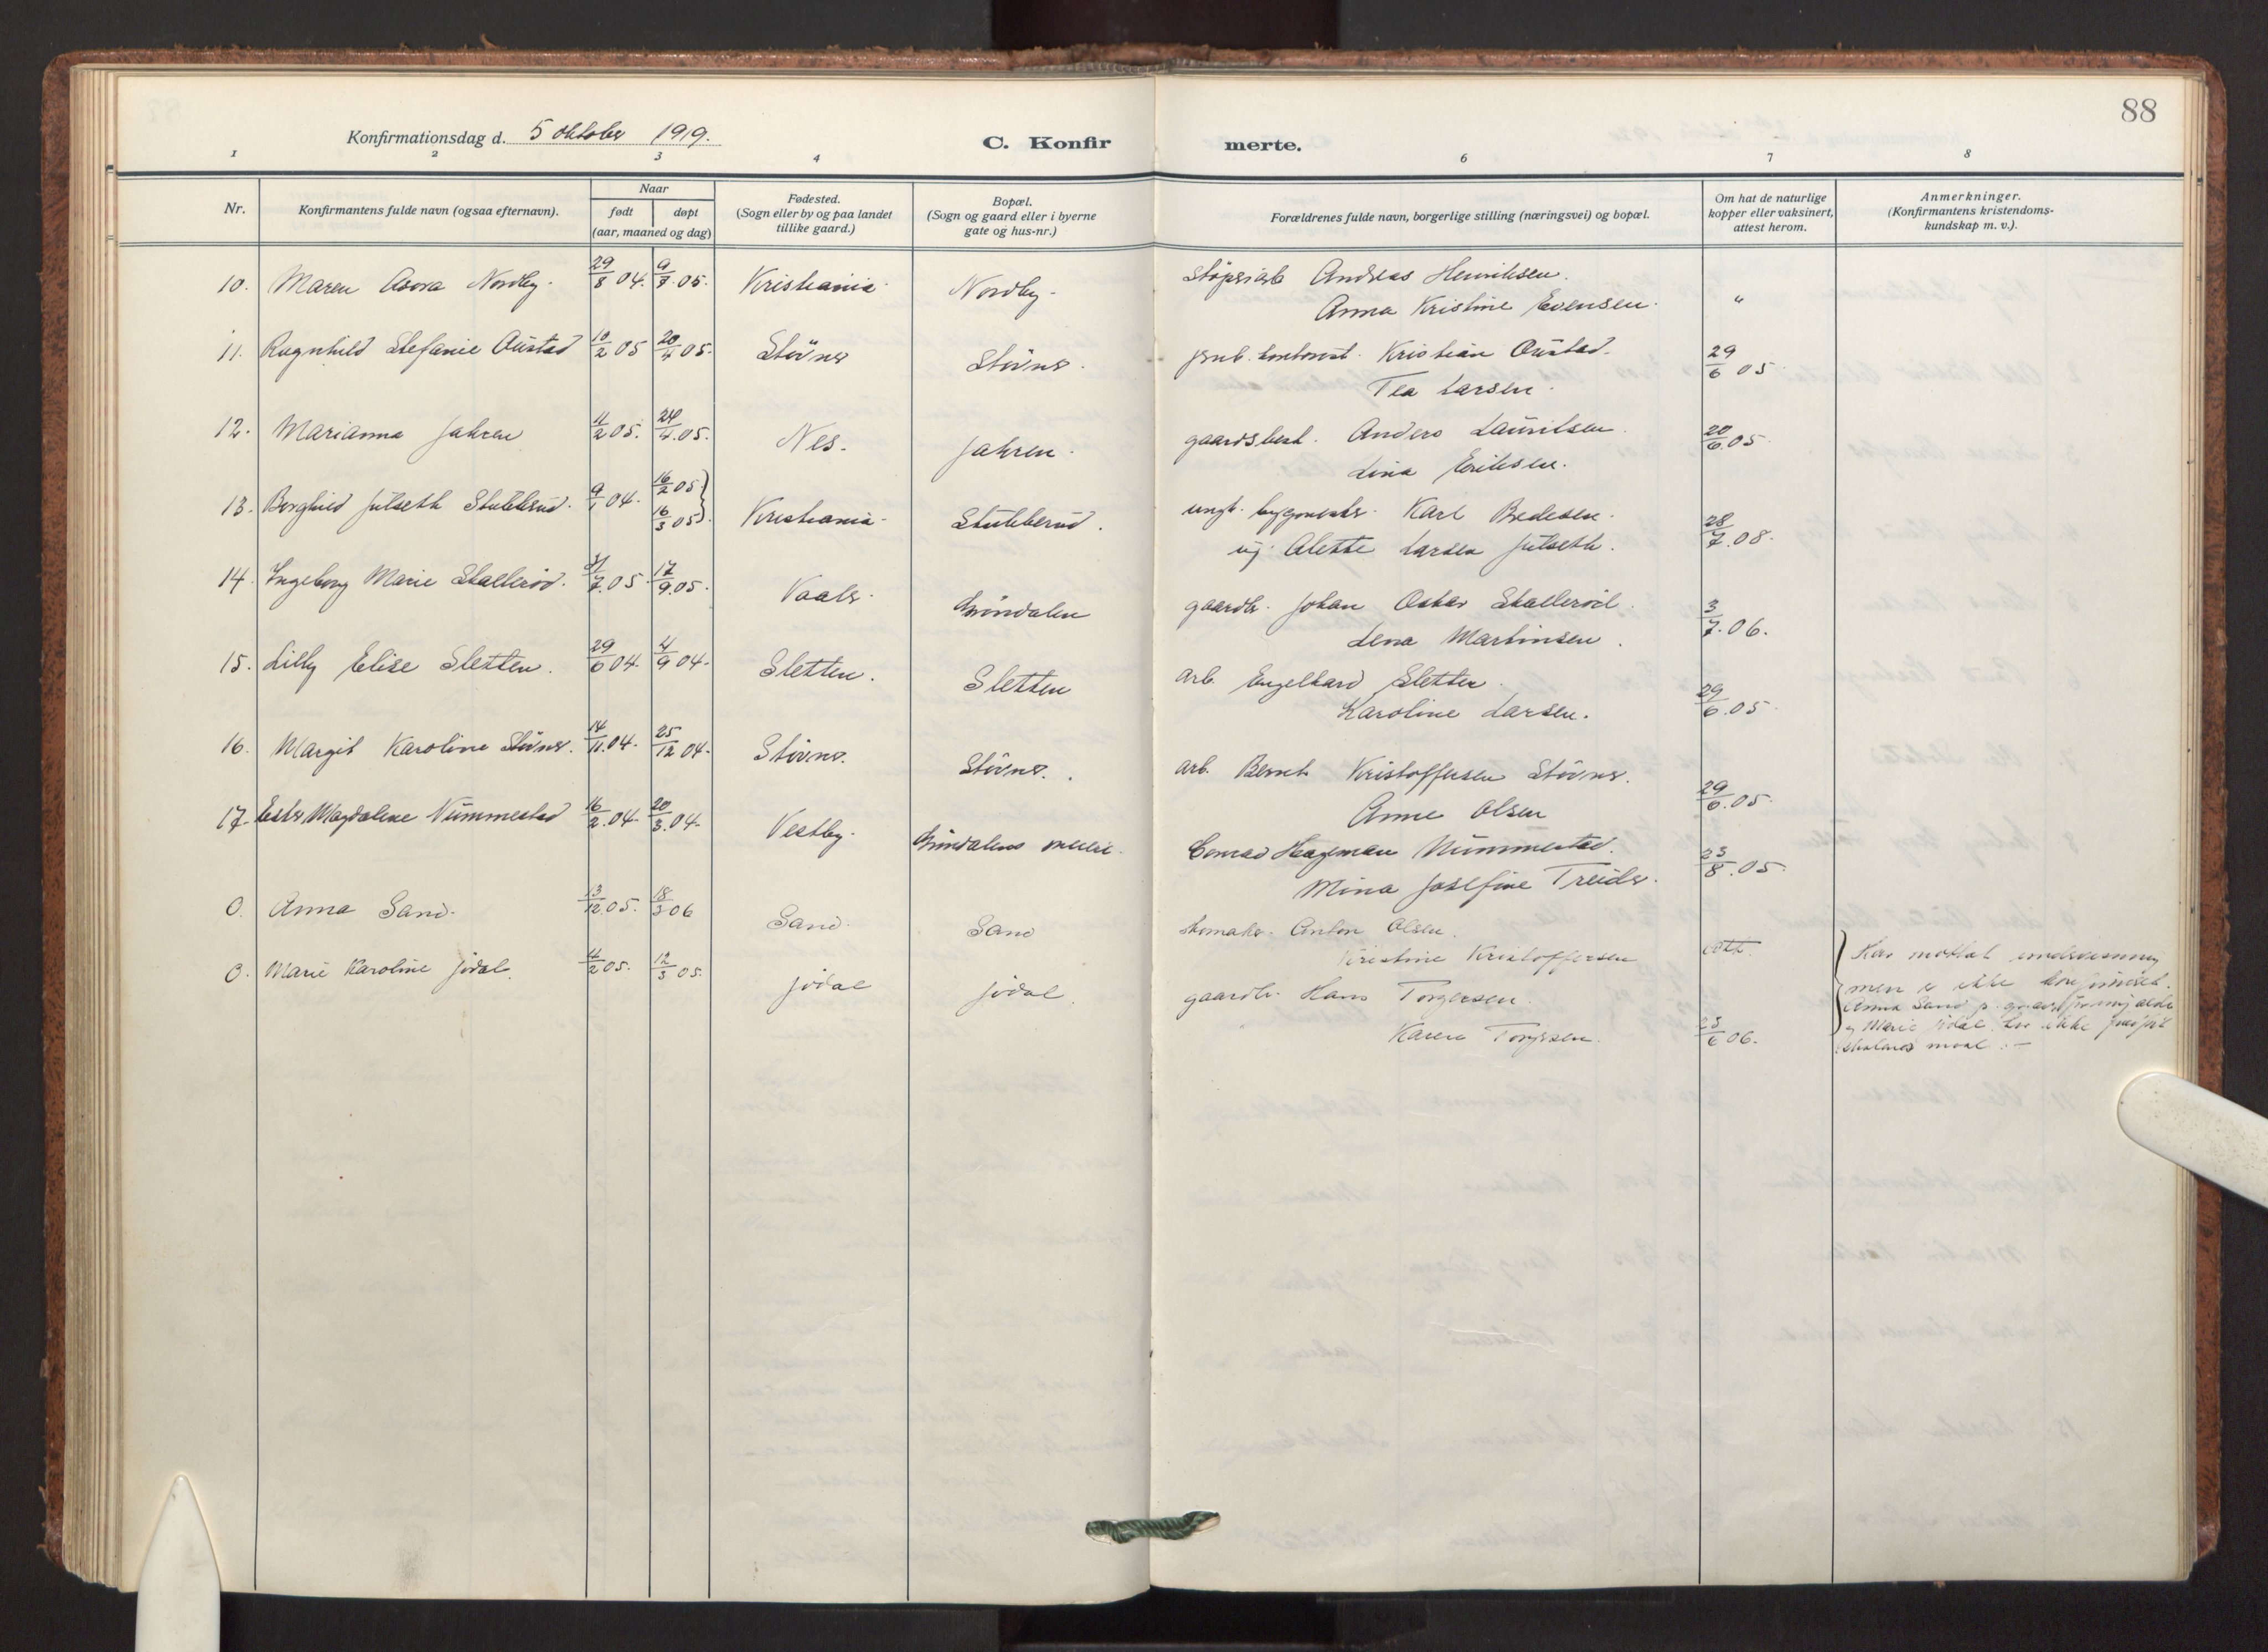 88
Konfirmationsdag d. 5 oktober 1919.
C. Konfirmerte.
1 2 3 4 6 7 8
Nr.
Konfirmantens fulde navn (ogsaa efternavn).
Naar
født døpt
(aar, maaned og dag)
Fødested.
(Sogn eller by og paa landet
tillike gaard.)
Bopæl.
(Sogn og gaard eller i byerne
gate og hus-nr.)
Forældrenes fulde navn, borgerlige stilling (næringsvei) og bopæl.
Om hat de naturlige
kopper eller vaksinert,
attest herom.
Anmerkninger.
(Konfirmantens kristendoms-
kundskap m. v.).
10. Maren Nordby. 29/8 04. Kristiania Nordby. Andreas Henriksen.
Anna Kristine Evensen. "
11. Ragnhild Stefanie Oustad 05 20/4 05. Støvner Støvner. Kristian Oustad.
Tea Larsen. 29/6 05
12. Marianna Jahren 11/2 05. 24/4.05. Nes. Jahren. gaardsbest. Anders Lauritsen.
Lina Eriksen. 20/6.05
13. Borghild Julseth Stubberud. 04. 16/2 05
16/3 05 Kristiania Stubberud. ungk. Karl Bredesen.
Alette Larsen Julseth. 28/7.08.
14. Ingeborg Marie Skallerød. 7.05. 17/9.05. Vaaler. Grøndalen gaardbr. Johan Oskar Skallerød.
Lena Martinsen. 3/7.06.
15. Lilly Elise Sletten. 29/6 04. 4/9 04. Sletten. Sletten arb. Engelhard Sletten.
Karoline Larsen. 29/6.05
16. Margit Karoline Støvner. 14/11.04. 25/12 04. Støvner. Støvner. arb. Bernt Kristoffersen Støvner.
Anne Olsen 29/6.05.
17. Ester Magdalene Nummestad 16/2.04. 20/3.04. Vestby. Grøndalens meieri. Conrad Hagman Nummestad.
Mina Josefine Treider. 23/8.05.
0. Anna Sand. 13/12 05. 18/3 06 Sand. Sand skomaker. Anton Olsen.
Kristine Kristoffersen
0. Marie Karoline Jødal. 2 05. 12/3 05. Jødal Jødal. gaardbr. Hans Torgersen.
Karen Torgersen. 06.
Har mottat undervisning
men er ikke konfirmeret.
Anna Sand p. grund for ung alder
og Marie Jødal
skolens maal. -